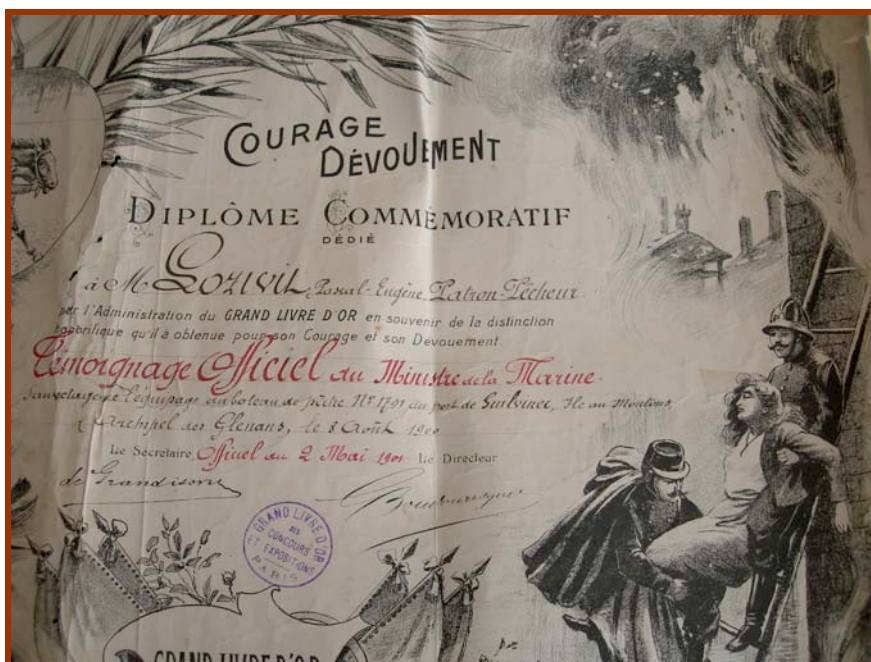 COURAGE
DÉVOUEMENT
DIPLÔME COMMÉMORATIF
DÉDIÉ
à M Lozivit, Pascal-Eugène, Patron-Pêcheur
par l'Administration du GRAND LIVRE D'OR en souvenir de la distinction
honorifique qu'il a obtenue pour son Courage et son Dévouement.
Témoignage Officiel du Ministre de la Marine.
Sauvetage de l'équipage du bateau de pêche N° 1791 du port de Guilvinec, Ile au Moutons,
Archipel des Glénans, le 8 Août 1900
Le Secrétaire, Officiel du 2 Mai 1901 Le Directeur
de Grandisom
GRAND LIVRE D'OR
DES
CONCOURS
ET EXPOSITIONS
PARIS
GRAND LIVRE D'OR